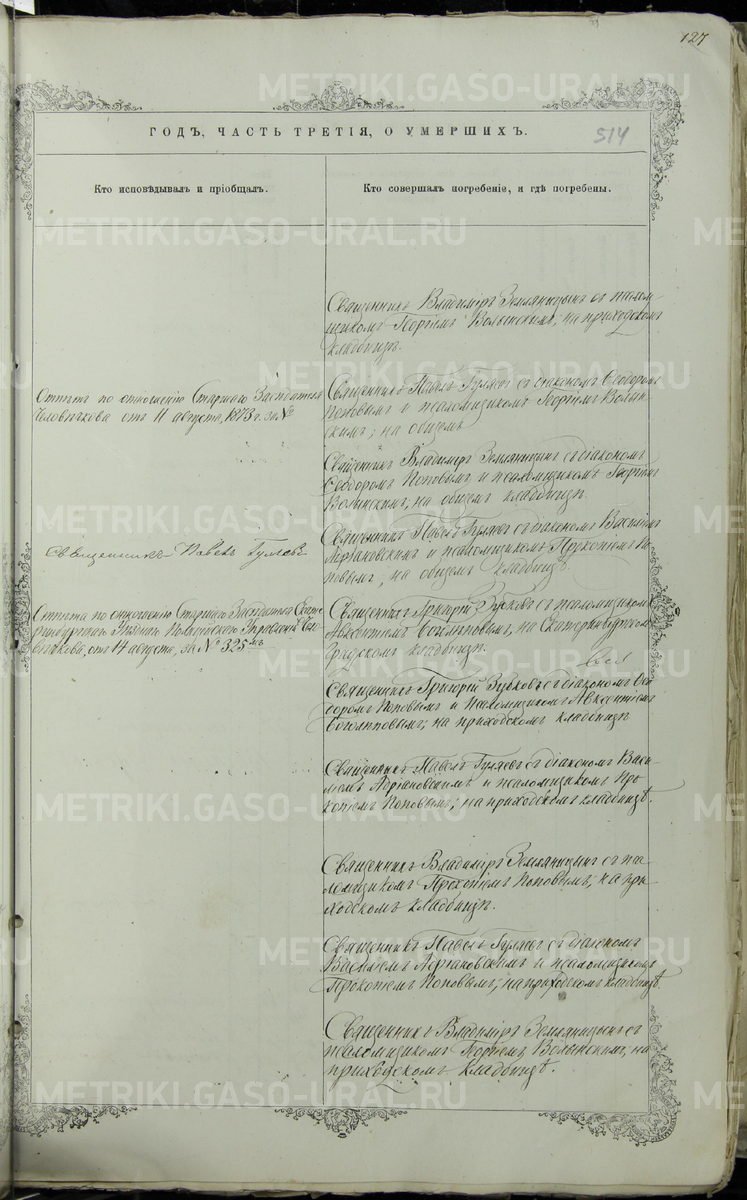 127
METRIKI.GASO-URAL.RU
514
ГОДЪ, ЧАСТЬ ТРЕТІЯ, О УМЕРШИХЪ.
Кто исповѣдывалъ и пріобщалъ.
Кто совершалъ погребеніе, и гдѣ погребены.
Священникъ Владиміръ Земляницынъ съ псалом
щикомъ Георгіемъ Волынскимъ, на приходскомъ
кладбищѣ.
Отпѣта по отношенію Старшаго Засѣдателя
Человѣчкова отъ 11 августа, 1873 г. за №
Священникъ Павелъ Гуляевъ съ діакономъ Ѳеодоромъ
Поповымъ и псаломщикомъ Георгіемъ Волын
скимъ; на общемъ
Священникъ Владиміръ Земляницынъ съ діакономъ
Ѳеодоромъ Поповымъ и псаломщикомъ Георгіем
Волынскимъ, на общемъ кладбищѣ.
Священникъ Павелъ Гуляевъ
Священникъ Павелъ Гуляевъ съ діакономъ Василіемъ
Адріановскимъ и псаломщикомъ Прокопіемъ По
повымъ, на общемъ кладбищѣ
Отпѣта по отношенію Старшаго Засѣдателя Екате
ринбургскаго Уѣзднаго Полицейскаго Управленія Чело
вѣчкова, отъ 14 августа, за № 325
Священникъ Григорій Зубковъ съ псаломщикомъ
Авксентіемъ на Екатеринбургском
градскомъ кладбищѣ.
Священникъ Григорій Зубковъ съ діакономъ Ѳео
доромъ Поповымъ и Псаломщикомъ Авксентіемъ
на приходскомъ кладбищѣ
Священникъ Павелъ Гуляевъ съ діакономъ Васи
ліемъ Адріановскимъ и псаломщикомъ Про
копіемъ Поповымъ; на приходскомъ кладбищѣ.
Священникъ Владиміръ Земляницынъ съ пса
ломщикомъ Прокопіемъ Поповымъ, на при
ходскомъ кладбищѣ.
Священникъ Павелъ Гуляевъ съ діакономъ
Василіемъ Адріановскимъ и псаломщикомъ
Прокопіемъ Поповымъ, на приходскомъ кладбищѣ.
Священникъ Владиміръ Земляницынъ съ
псаломщикомъ Георгіемъ Волынскимъ, на
приходскомъ кладбищѣ.